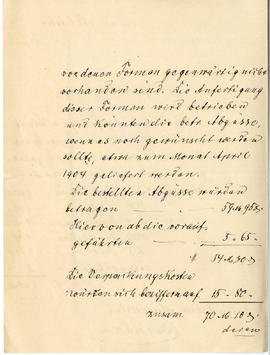 von denen Formen gegenwärtig nicht
vorhanden sind. Die Anfertigung
dieser Formen wird betrieben
und könnten die betr. Abgüsse,
wenn es noch gewünscht werden
sollte, etwa zum Monat April
1904 geliefert werden.
Die bestellten Abgüsse würden
betragen
Hiervon ab die vorauf-
geführten 3-65-
Die Verpackungskosten
würden sich beziffern auf 15-80-
zusam.